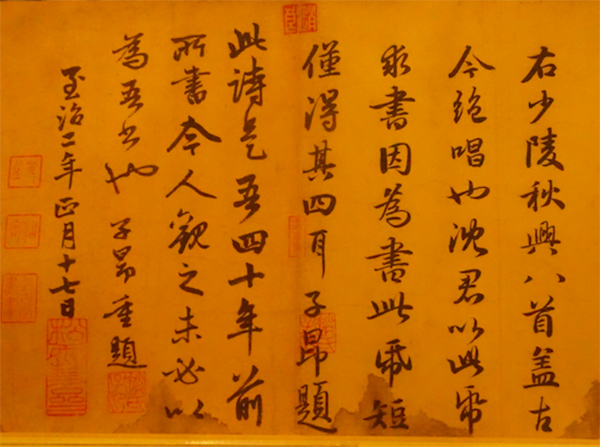 右少陵秋興八首盖古
今绝唱也沈君以此帋
求書因為書此帋短
僅得其四耳子昂題
此詩是吾四十年前
所書今人觀之未必以
為吾書也子昂重題
至治二年正月十七日